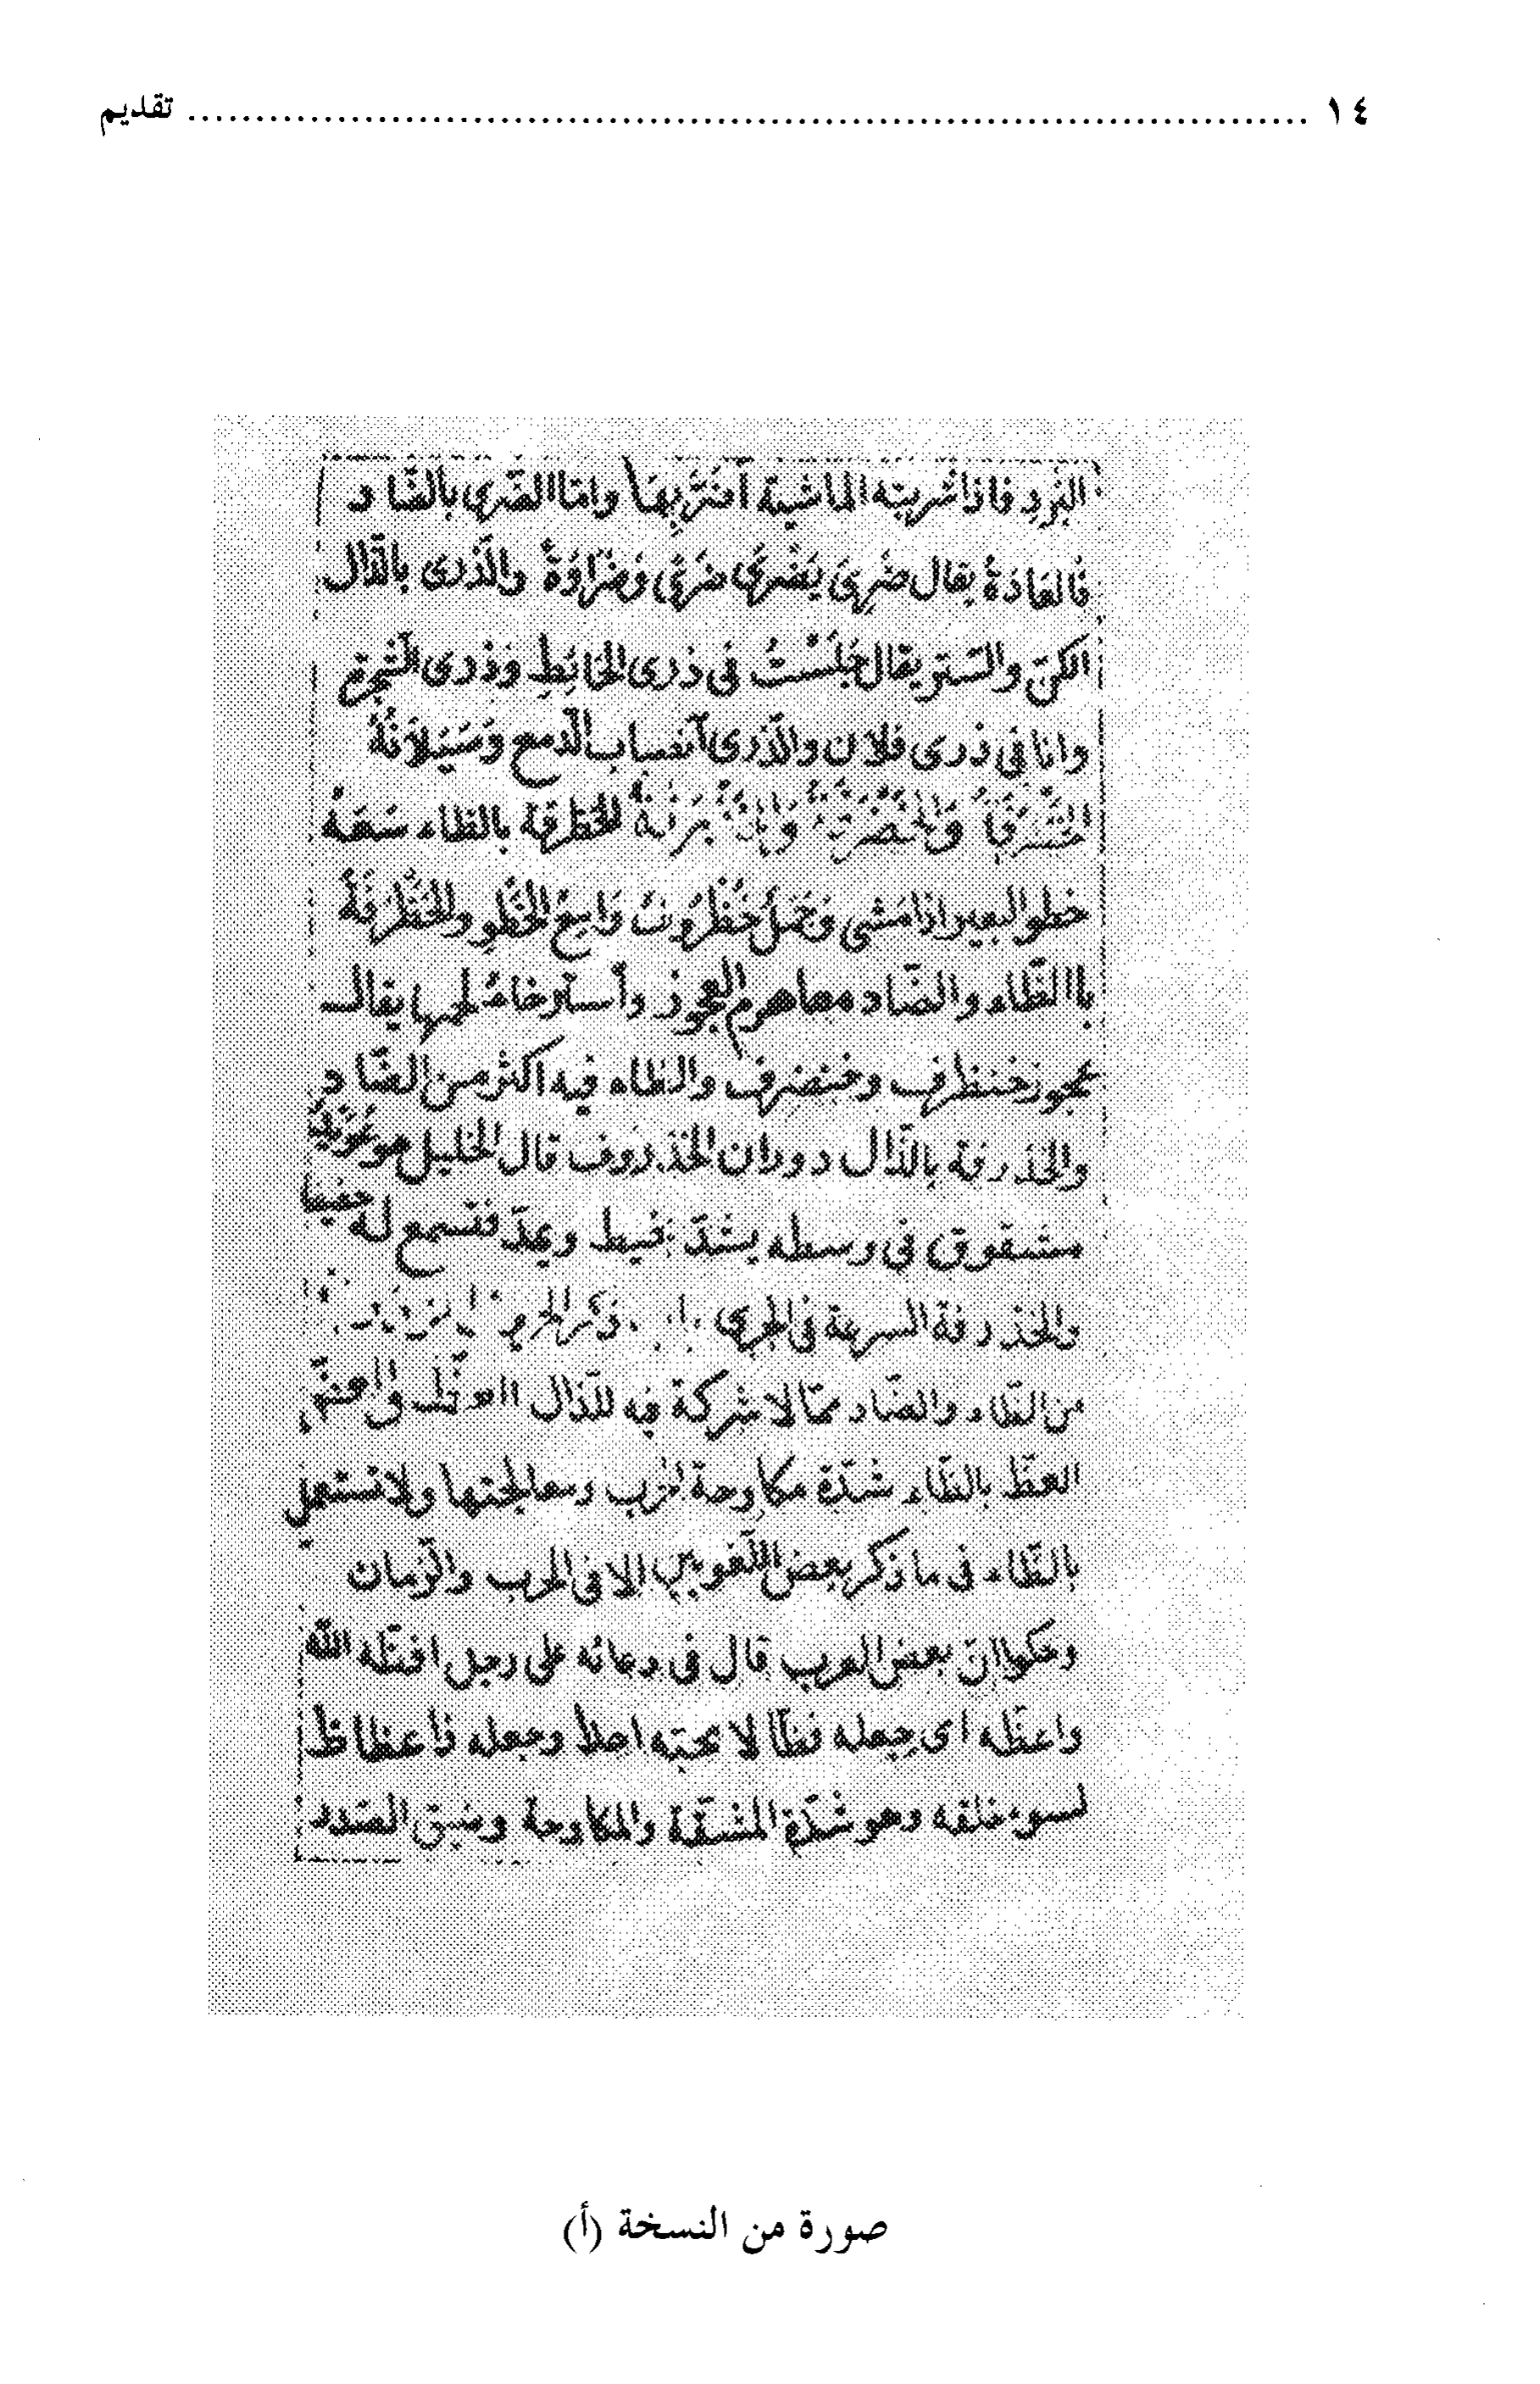 ١٤ ........ تقديم
البَرْدِ فاذا شربته الماشية أَضَرَّ بِهَا وامّا الضَّرى بالضّاد
فالعَادَةُ يقال ضَرِىَ يَضْرَى ضَرًى وَضَرَاوَةً والذَّرى بالذّال
الكنّ والستر يقال جَلَسْتُ فى ذرى الحائِطِ وذرى الشجرة
وانا فى ذرى فلان والذّرى آنصباب الدّمع وَسَيَلَانُهُ
بالظاء سَعَةُ
خطو البعير اذا مشى وَجَمَلٌ خُظْرُوفٌ وَاسِعُ الخَطْوِ والخَظْرَفَةُ
باالظّاء والضّاد معا هرم العجوز وآسترخاءُ لحمها يقال
عجوز خنظرف وخنضرف والظاء فيه اكثر من الضّاد
والخذرفة بالذّال دوران الخذروف قال الخليل هو عُوَيْدٌ
مشقوق فى وسطه يشدّ بخيط ويمدّ فتسمع له حفيفا
والخذرفة السرعة فى الجرى
من الظّاء والضّاد ممّا لا شركة فيه للذّال العظّ والعضّ
العظّ بالظّاء شدّة مكاوحة الحرب ومعالجتها ولا تستعمل
بالظّاء فى ما ذكر بعض اللّغويين الا فى الحرب والزمان
وحكوا انّ بعض العرب قال فى دعائه على رجل افظّه الله
واعظّه اى جعله فظّا لا يحبّه احدٌ وجعله ذا عظاظ
لسوء خلقه وهو شدّة المشقّة والمكاوحة وضيق الصّدر
صورة من النسخة (أ)